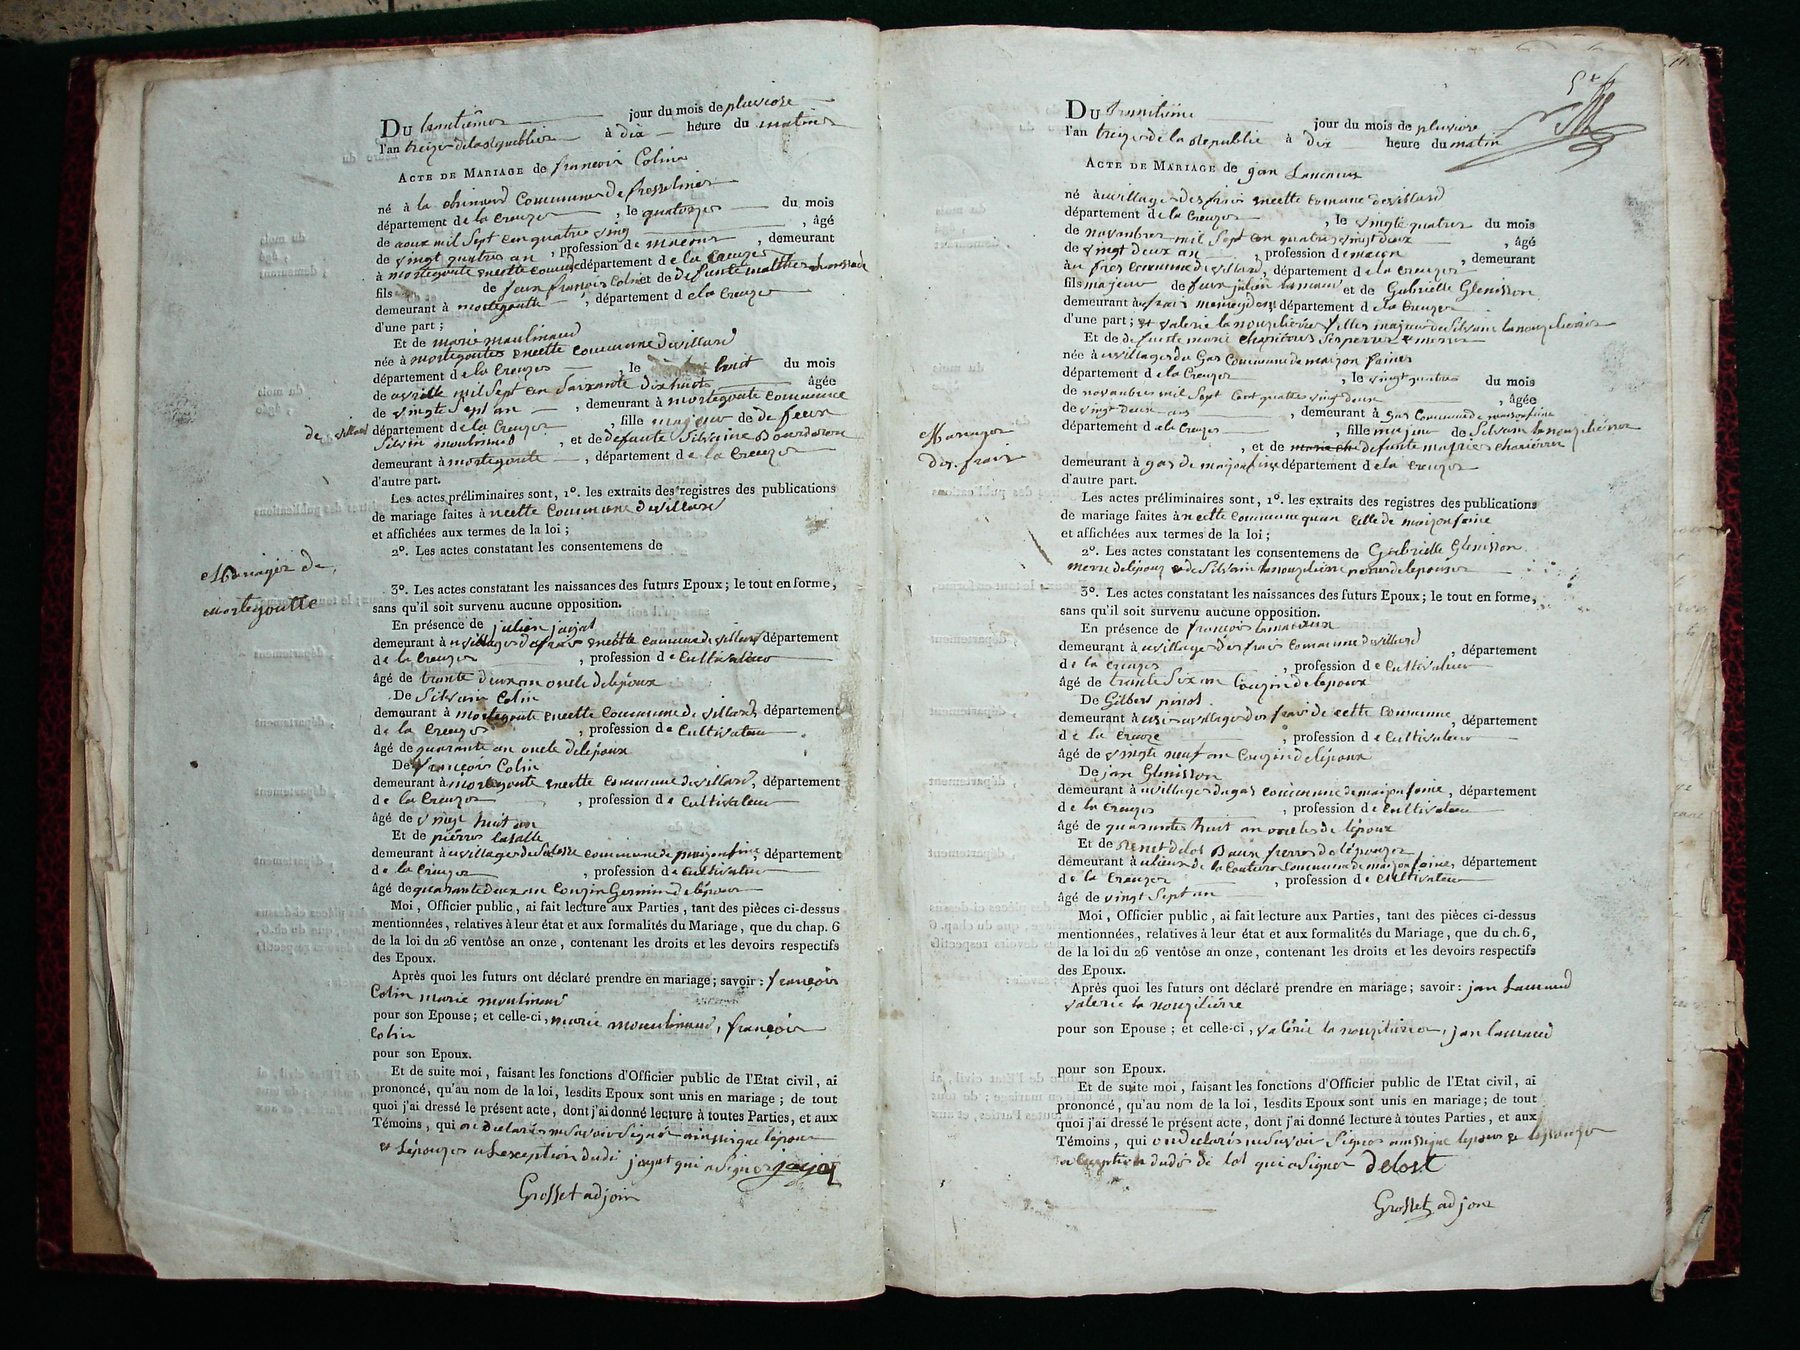 Du trantième jour du mois de pluviose
l'an treize de la republice à dix heure du matin
Acte de Mariage de françois Colin
né à la commune de fresselines
département de la Creuze , le quatorze du mois
de aoux mil Sept cen quatre ving , âgé
de vingt quatre an , profession de macon , demeurant
à mortegoute département de la Creuze
fils de feux françois Colin et de defunte
demeurant à mortegoutte , département de la Creuze
d'une part ;
Et de marie moulinaud
née à mortegoutes encette commune de villard
département de la Creuzes , le huit du mois
de avrille mil Sept cen Soixante dix huit âgée
de vingte Sept an , demeurant à mortegoute commune
de villard
département de la Creuze , fille majeur de de feux
Silvin moulinaud , et de defunte Silvaine
demeurant à mortegoute , département de la Creuze
d'autre part.
Les actes préliminaires sont, 1°. les extraits des registres des publications
de mariage faites à necette Commune de villard
et affichées aux termes de la loi ;
2°. Les actes constatant les consentemens de
Mariage de
mortegoutte
3°. Les actes constatant les naissances des futurs Epoux ; le tout en forme,
sans qu'il soit survenu aucune opposition.
En présence de julien jayat
demeurant à uvillage de frais enecette commune de villard département
de la Creuze , profession de Cultivateur
âgé de trante deux an oncle de lépoux
De Silvain Colin
demeurant à mortegoute enecette commune de villard, département
de la Creuze , profession de Cultivateur
âgé de quarante an oncle de lépoux
De françois Colin
demeurant à mortegoute enecette commune de villard, département
de la Creuze , profession de Cultivateur
âgé de vingt huit an
Et de piérres lasalle
demeurant à uvillage de commune de maizonfeine, département
de la Creuze , profession de Cultivateur
âgé de quarante deux an Couzin Germin de lépoux
Moi, Officier public, ai fait lecture aux Parties, tant des pièces ci-dessus
mentionnées, relatives à leur état et aux formalités du Mariage, que du chap. 6
de la loi du 26 ventôse an onze, contenant les droits et les devoirs respectifs
des Epoux.
Après quoi les futurs ont déclaré prendre en mariage ; savoir : françois
Colin marie moulinaud
pour son Epouse ; et celle-ci, marie moulinaud, françois
Colin
pour son Epoux.
Et de suite moi, faisant les fonctions d'Officier public de l'Etat civil, ai
prononcé, qu'au nom de la loi, lesdits Epoux sont unis en mariage ; de tout
quoi j'ai dressé le présent acte, dont j'ai donné lecture à toutes Parties, et aux
Témoins, qui on declarés ne Savoir Signé ainssique lépoux
et Lépouze a Lexception dudi jayat qui a Signer jayat
Grosset adjoin
Du trantiéme jour du mois de pluviose
l'an treize de la republic à dix heure du matin
Acte de Mariage de jan
né à uvillage des frais enecette comune de villard
département de la Creuze , le vingte quatre du mois
de novambre mil Sept cen quatre vingt deux , âgé
de vingt deux an , profession de macon , demeurant
au fres commune de villard, département de la Creuze
fils majeur de feux julien lamaud et de Gabrielle Glenisson
demeurant à frais département de la Creuze
d'une part ; et valerie la nouzelierre filles majeur de Silvain la nouzelierre
Et de defunte marie
née à uvillage du Gas Commune de maizon faine
département de la Creuze , le vingt quatre du mois
de novambre mil Sept Cent quatre vingt deux , âgée
de vingt deux ans , demeurant à gas Commune de maisonfaine
département de la Creuze , fille majeur de Silvain la nouzelierre
, et de defunte
Mariage
des frais
demeurant à gas de maizonfeine département de la Creuze
d'autre part.
Les actes préliminaires sont, 1°. les extraits des registres des publications
de mariage faites à necette Commune quan Celle de maizon faine
et affichées aux termes de la loi ;
2°. Les actes constatant les consentemens de Gabrielle Glenisson
merre de lépoux et de Silvain la nouzelierre perre de lepouze
3°. Les actes constatant les naissances des futurs Epoux ; le tout en forme,
sans qu'il soit survenu aucune opposition.
En présence de françois
demeurant à uvillage des frais commune de villard , département
de la Creuze , profession de Cultivateur
âgé de trante Six an Couzin de lepoux
De Gilbert pinot
demeurant à uvillage des frais de cette Commune , département
de la Creuze , profession de Cultivateur
âgé de vingte neuf an Couzin de lépoux
De jan Glenisson
demeurant à uvillage du gas commune de maizonfeine , département
de la Creuze , profession de Cultivateur
âgé de quarante huit an oncles de lépoux
Et de
demeurant à ulieux de la Couture Commune de maizonfaine, département
de la Creuze , profession de Cultivateur
âgé de vingt Sept an
Moi, Officier public, ai fait lecture aux Parties, tant des pièces ci-dessus
mentionnées, relatives à leur état et aux formalités du Mariage, que du ch. 6,
de la loi du 26 ventôse an onze, contenant les droits et les devoirs respectifs
des Epoux.
Après quoi les futurs ont déclaré prendre en mariage ; savoir : jan Lamaud
valerie la nouzilierre
pour son Epouse ; et celle-ci, valérie la nouzilierre, jan lamaud
pour son Epoux.
Et de suite moi, faisant les fonctions d'Officier public de l'Etat civil, ai
prononcé, qu'au nom de la loi, lesdits Epoux sont unis en mariage ; de tout
quoi j'ai dressé le présent acte, dont j'ai donné lecture à toutes Parties, et aux
Témoins, qui on declarés ne Savoir Signer ainssique lepoux et lepouze
a Lexception dudi de lost qui a Signer delost
Grosset adjoin